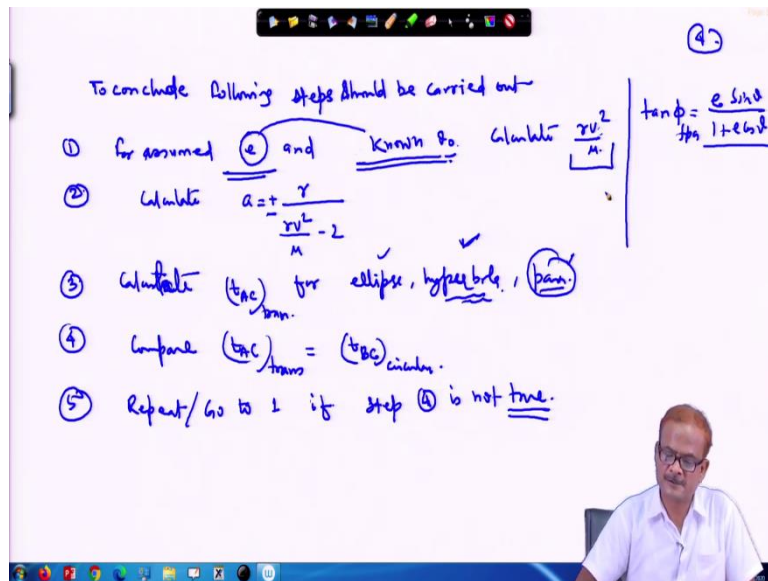 9.
To conclude following steps should be carried out
① for assumed e and known θ₀. Calculate rv²/μ
② Calculate a = ± r / (rv²/μ - 2)
③ Calculate (t_AC)tran. for ellipse, hyperbola, para.
④ Compare (t_AC)trans = (t_BC)circular.
⑤ Repeat/Go to 1 if step ④ is not true.
tan φ = e sin θ / 1+e cos θ